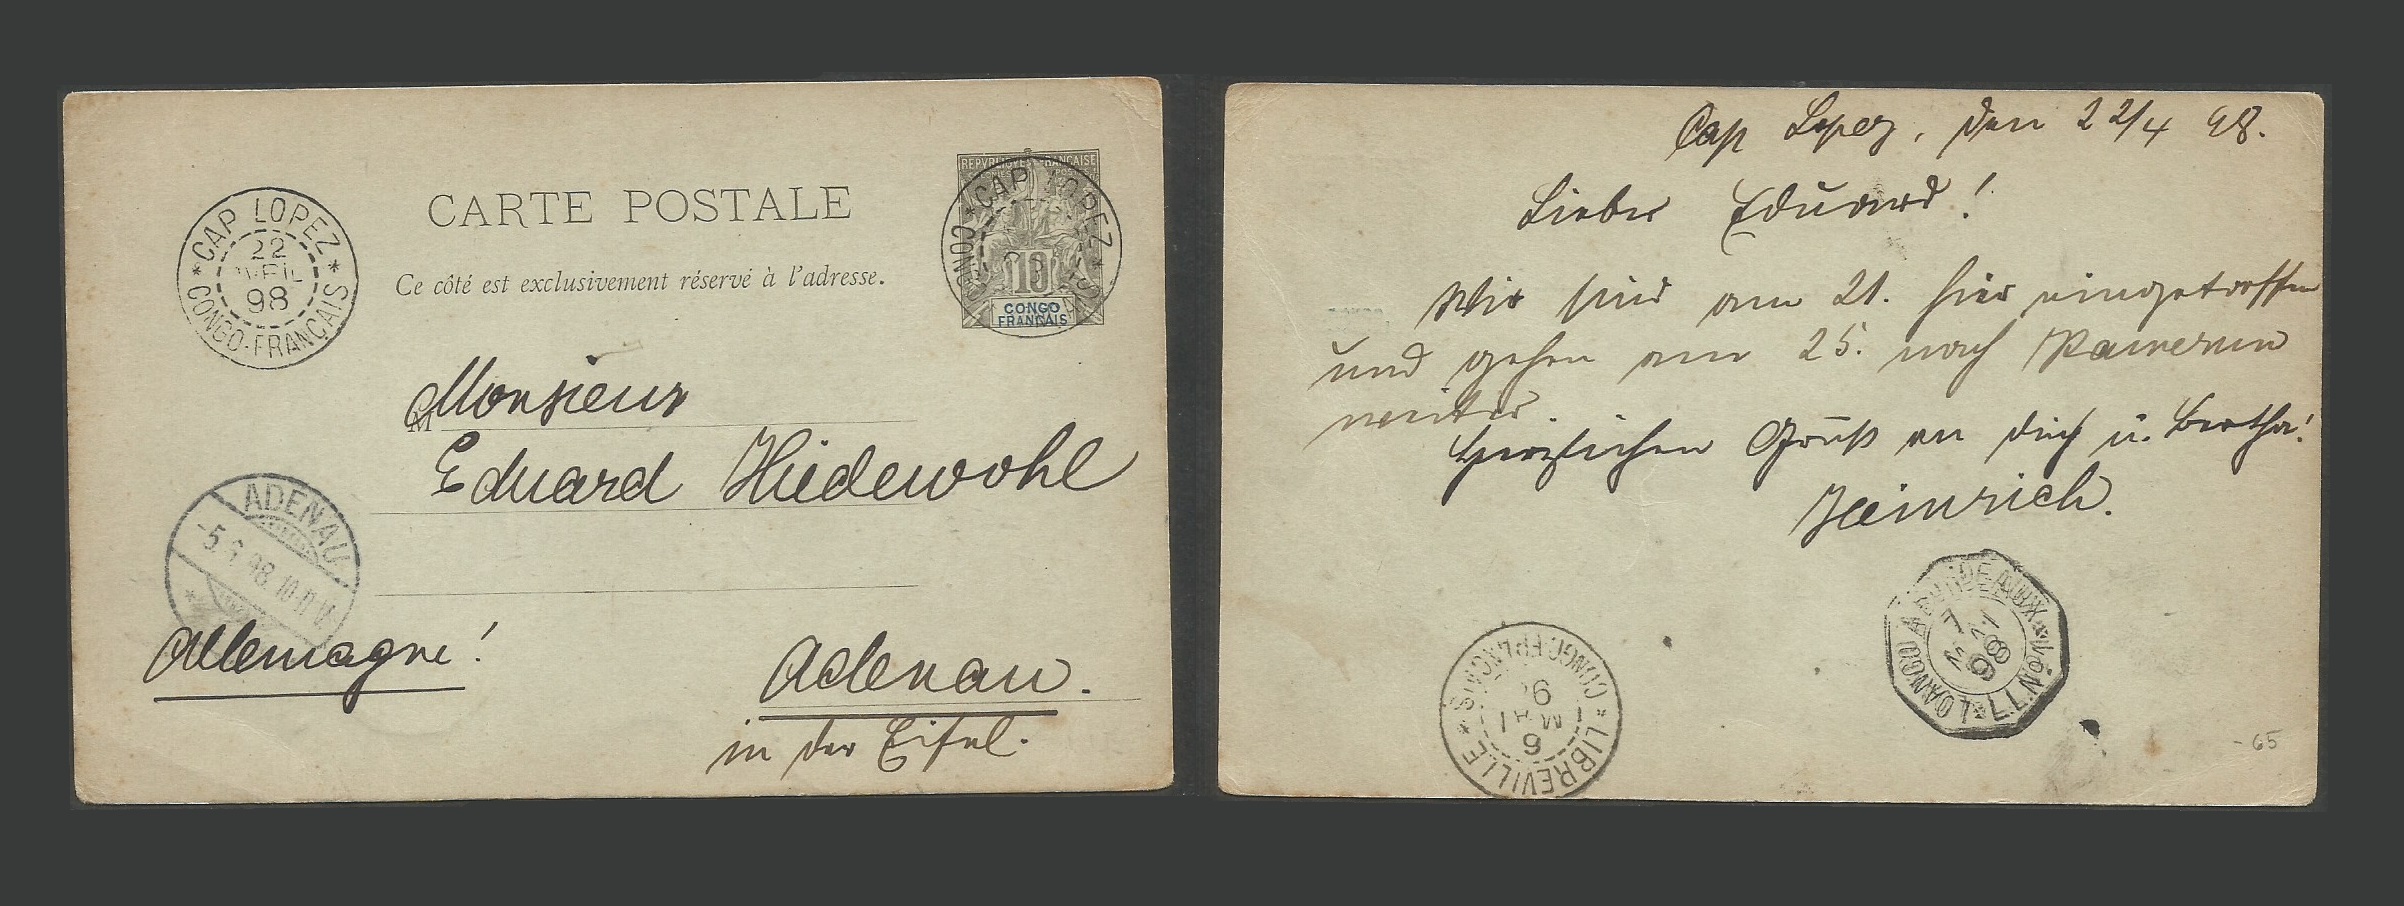 CARTE POSTALE
Ce côté est exclusivement réservé à l'adresse.
REPVBLIQVE FRANÇAISE
COLONIES POSTES
10
CONGO
FRANÇAIS
* CAP LOPEZ *
CONGO-FRANÇAIS
* CAP LOPEZ *
22
AVRIL
98
CONGO-FRANÇAIS
M
Monsieur
Eduard Hiedewohl
ADENAU
-5.6.98.10-11V
Allemagne!
Adenau.
in der Eifel.
Cap Lopez, den 22/4 98.
Lieber Eduard!
Wir sind am 21. hier eingetroffen
und gehen am 25. nach Kamerun
weiter.
Herzlichen Gruß an dich u. Bertha!
Heinrich.
LOANGO A BORDEAUX
L.L.Nº
7
MAI
98
* LIBREVILLE *
6
MAI
CONGO FRANÇAIS
-65